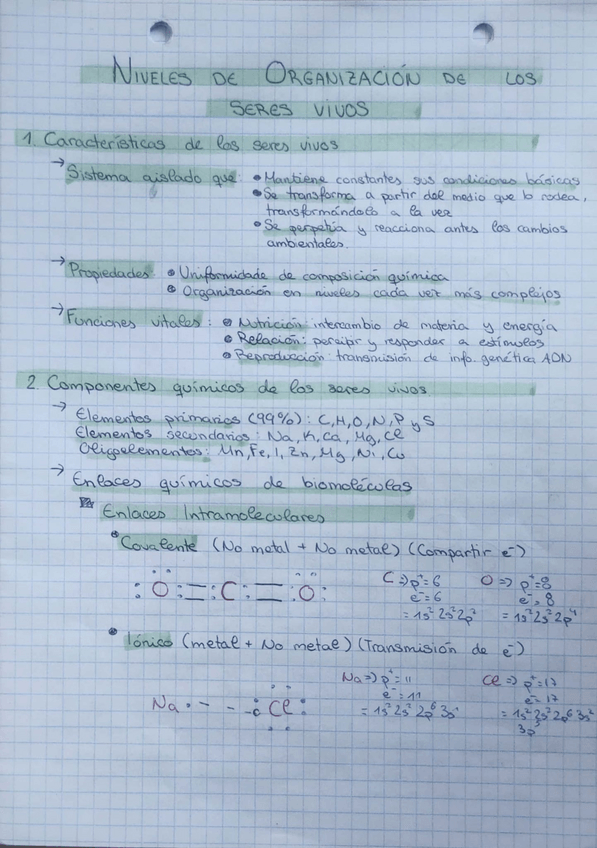 NIVELES DE ORGANIZACIÓN DE LOS
SERES VIVOS
1. Características de los seres vivos
→ Sistema aislado que: • Mantiene constantes sus condiciones básicas
• Se transforma a partir del medio que lo rodea,
transformándolo a la vez
• Se perpetúa y reacciona antes los cambios
ambientales.
→ Propiedades • Uniformidade de composición química
• Organización en niveles cada vez más complejos
→ Funciones vitales: • Nutrición: intercambio de materia y energía
• Relación: percibir y responder a estímulos
• Reproducción: transmisión de info. genética ADN
2. Componentes químicos de los seres vivos
→ Elementos primarios (99%): C, H, O, N, P y S
Elementos secundarios: Na, K, Ca, Mg, Cl
Oligoelementos: Mn, Fe, I, Zn, Mg, Ni, Cu
→ Enlaces químicos de biomoléculas
Enlaces Intramoleculares
• Covalente (No metal + No metal) (Compartir e⁻)
:O:=C=:O: C => p⁺= 6 O => p⁺=8
e⁻= 6 e⁻= 8
= 1s² 2s² 2p² = 1s² 2s² 2p⁴
• Iónico (metal + No metal) (Transmisión de e⁻)
Na => p⁺= 11 Cl => p⁺=17
e⁻= 11 e⁻= 17
Na· - - - :Cl: = 1s² 2s² 2p⁶ 3s¹ = 1s² 2s² 2p⁶ 3s²
3p⁵